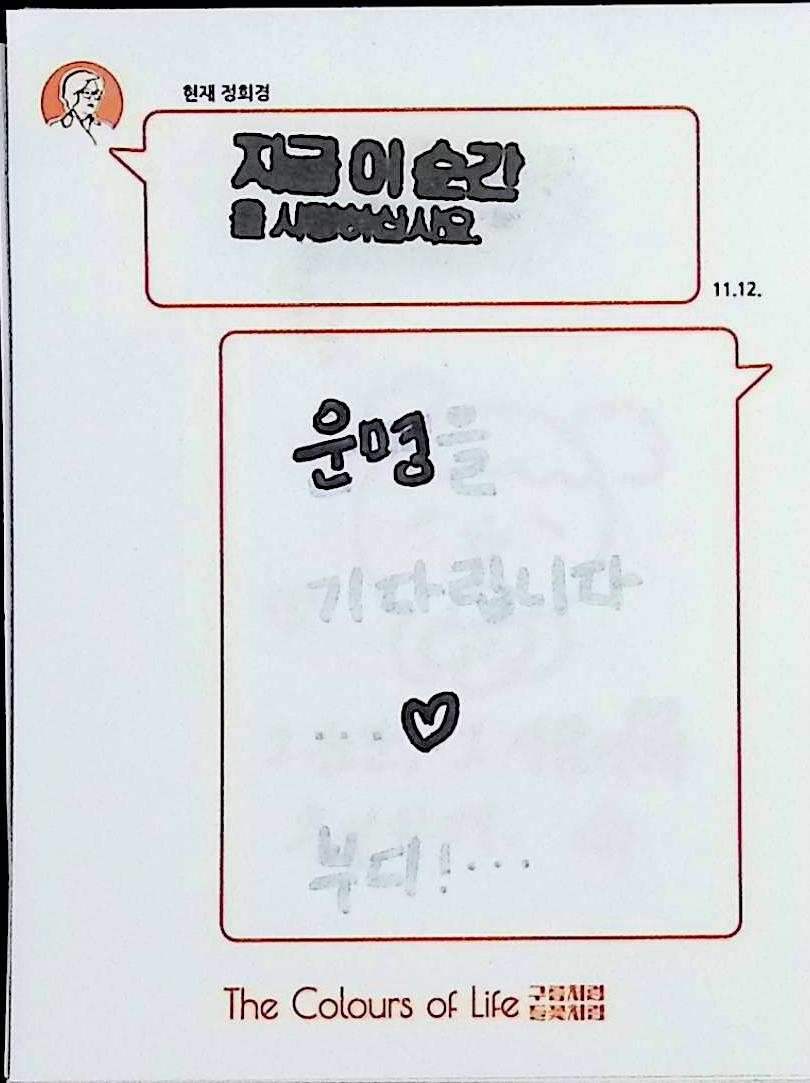 현재 정희경
지금 이 순간
을 사랑하십시오
11.12.
운명을
기다립니다
...♡
부디!...
The Colours of Life 구름처럼
들꽃처럼